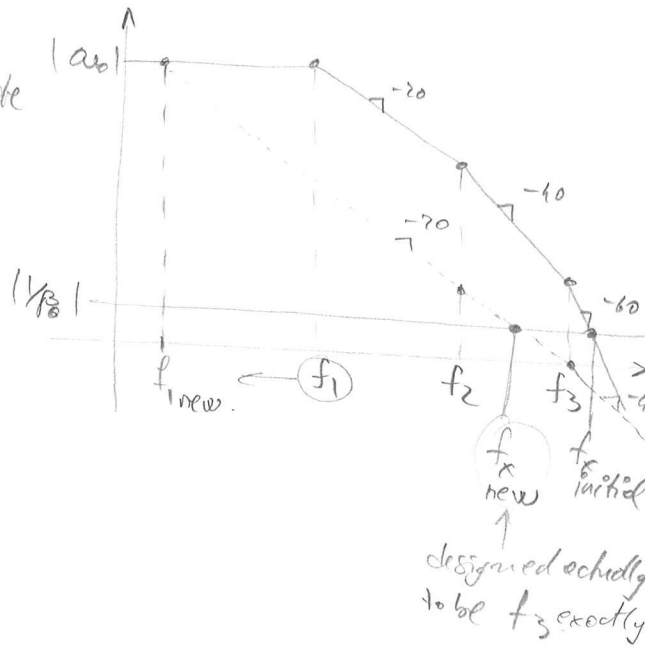 |a₀|
-20
-40
-20
-60
|1/β₀|
f₁new.
f₁
f₂
f₃
fₓ
new
fₓ
initial
designed actually
to be f₃ exactly